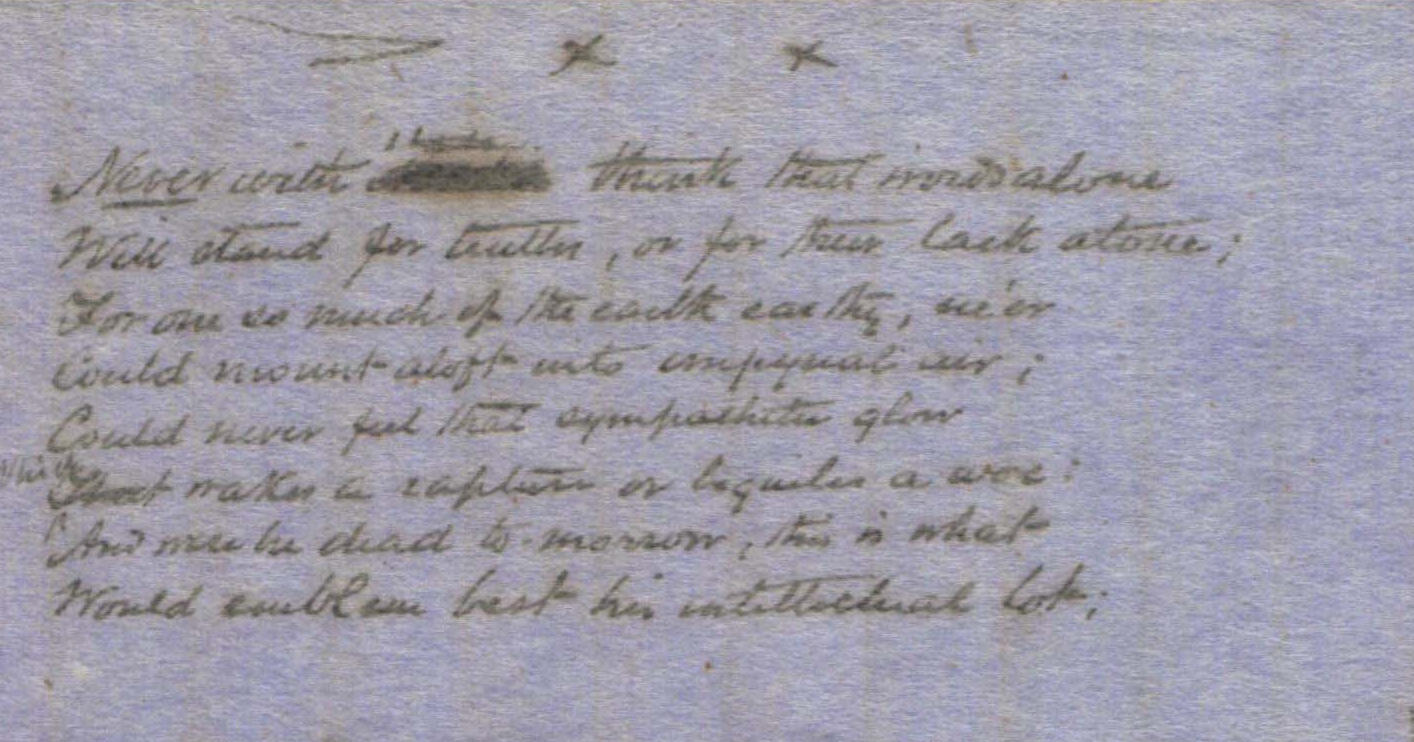 x x
Never with think that words alone
Will stand for truths, or for their lack atone;
For one so much of the earth earthy, ne'er
Could mount aloft into empyreal air;
Could never feel that sympathetic glow
makes a rapture or beguiles a woe:
And were he dead to-morrow, this is what
Would emblem best his intellectual lot;